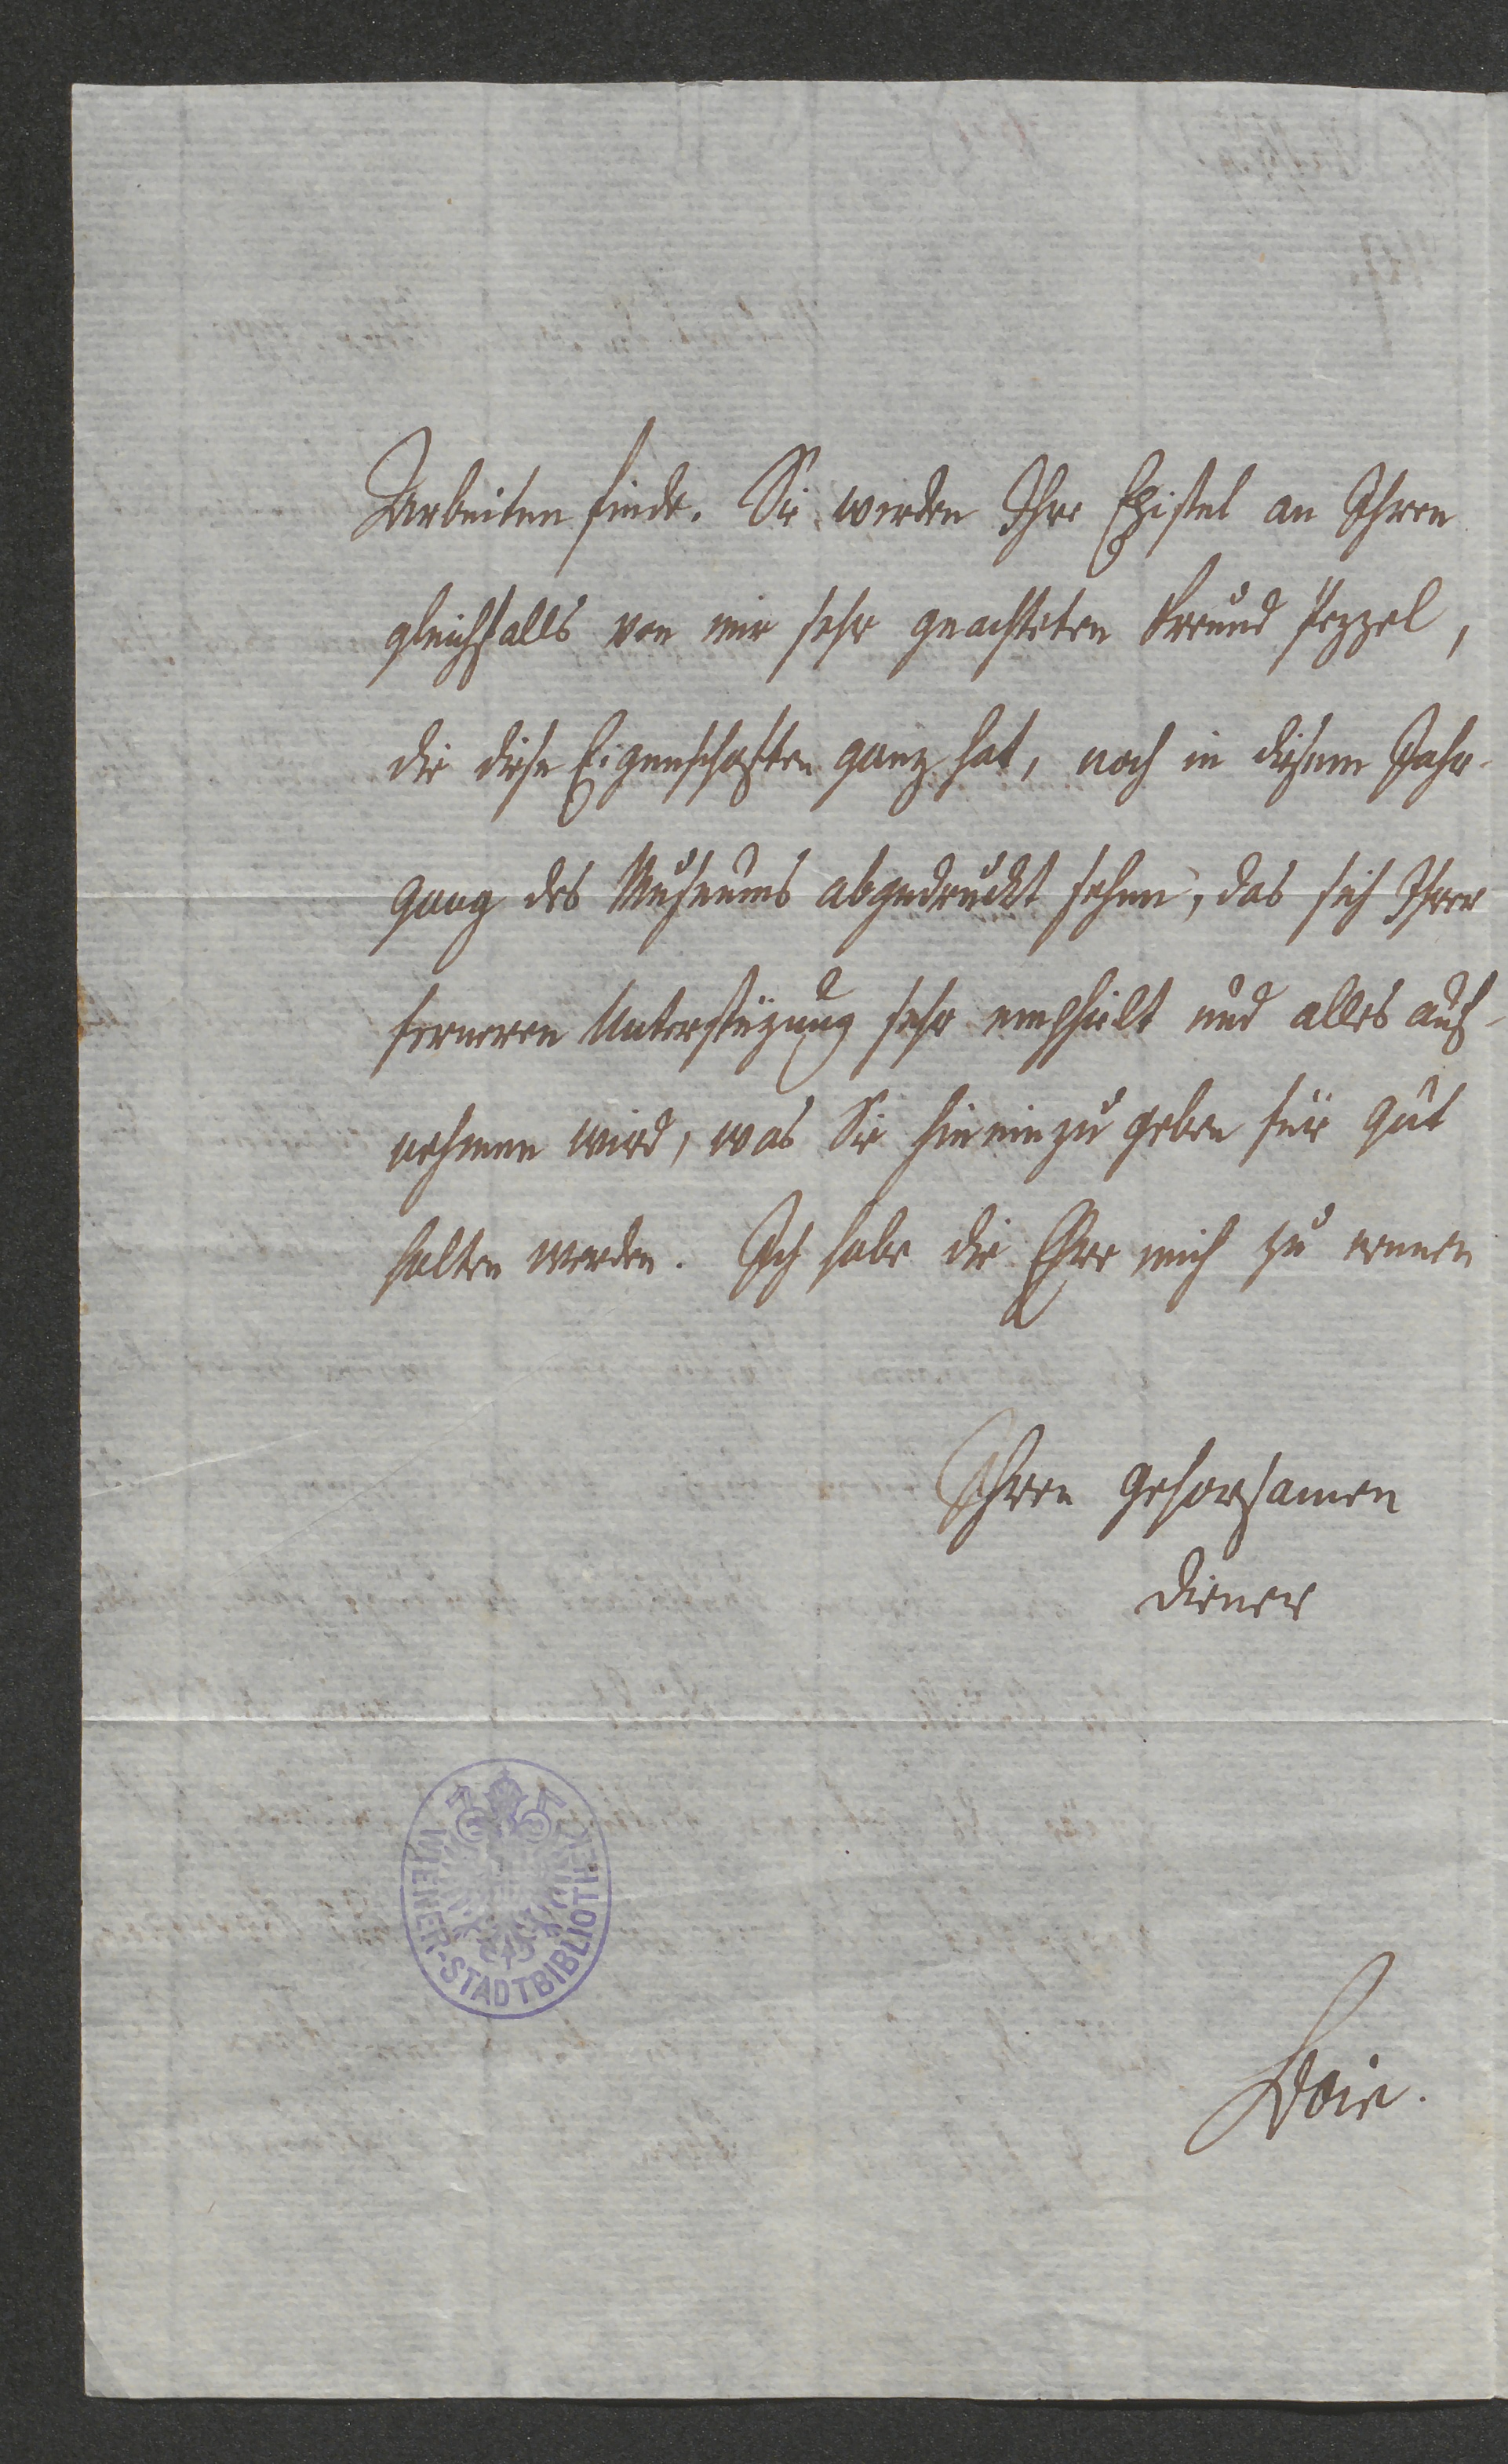 Arbeiten finde. Sie werden Ihre Epistel an Ihren
gleichfalls von mir sehr geachteten Freund Pezzel,
die diese Eigenschaften ganz hat, noch in diesem Jahr-
gang des Museums abgedruckt sehen, das sich Ihrer
ferneren Unterstüzung sehr empfhielt und alles auf-
nehmen wird, was Sie hineinzugeben für gut
halten werden. Ich habe die Ehre mich zu nennen
Ihren gehorsamen
Diener
WIENER-STADTBIBLIOTHEK
Boie.